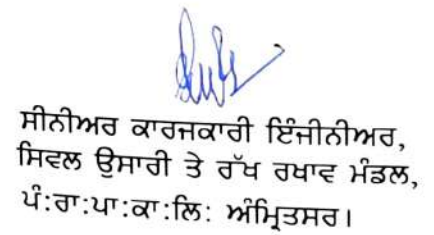 ਸੀਨੀਅਰ ਕਾਰਜਕਾਰੀ ਇੰਜੀਨੀਅਰ,
ਸਿਵਲ ਉਸਾਰੀ ਤੇ ਰੱਖ ਰਖਾਵ ਮੰਡਲ,
ਪੰ:ਰਾ:ਪਾ:ਕਾ:ਲਿ: ਅੰਮ੍ਰਿਤਸਰ।